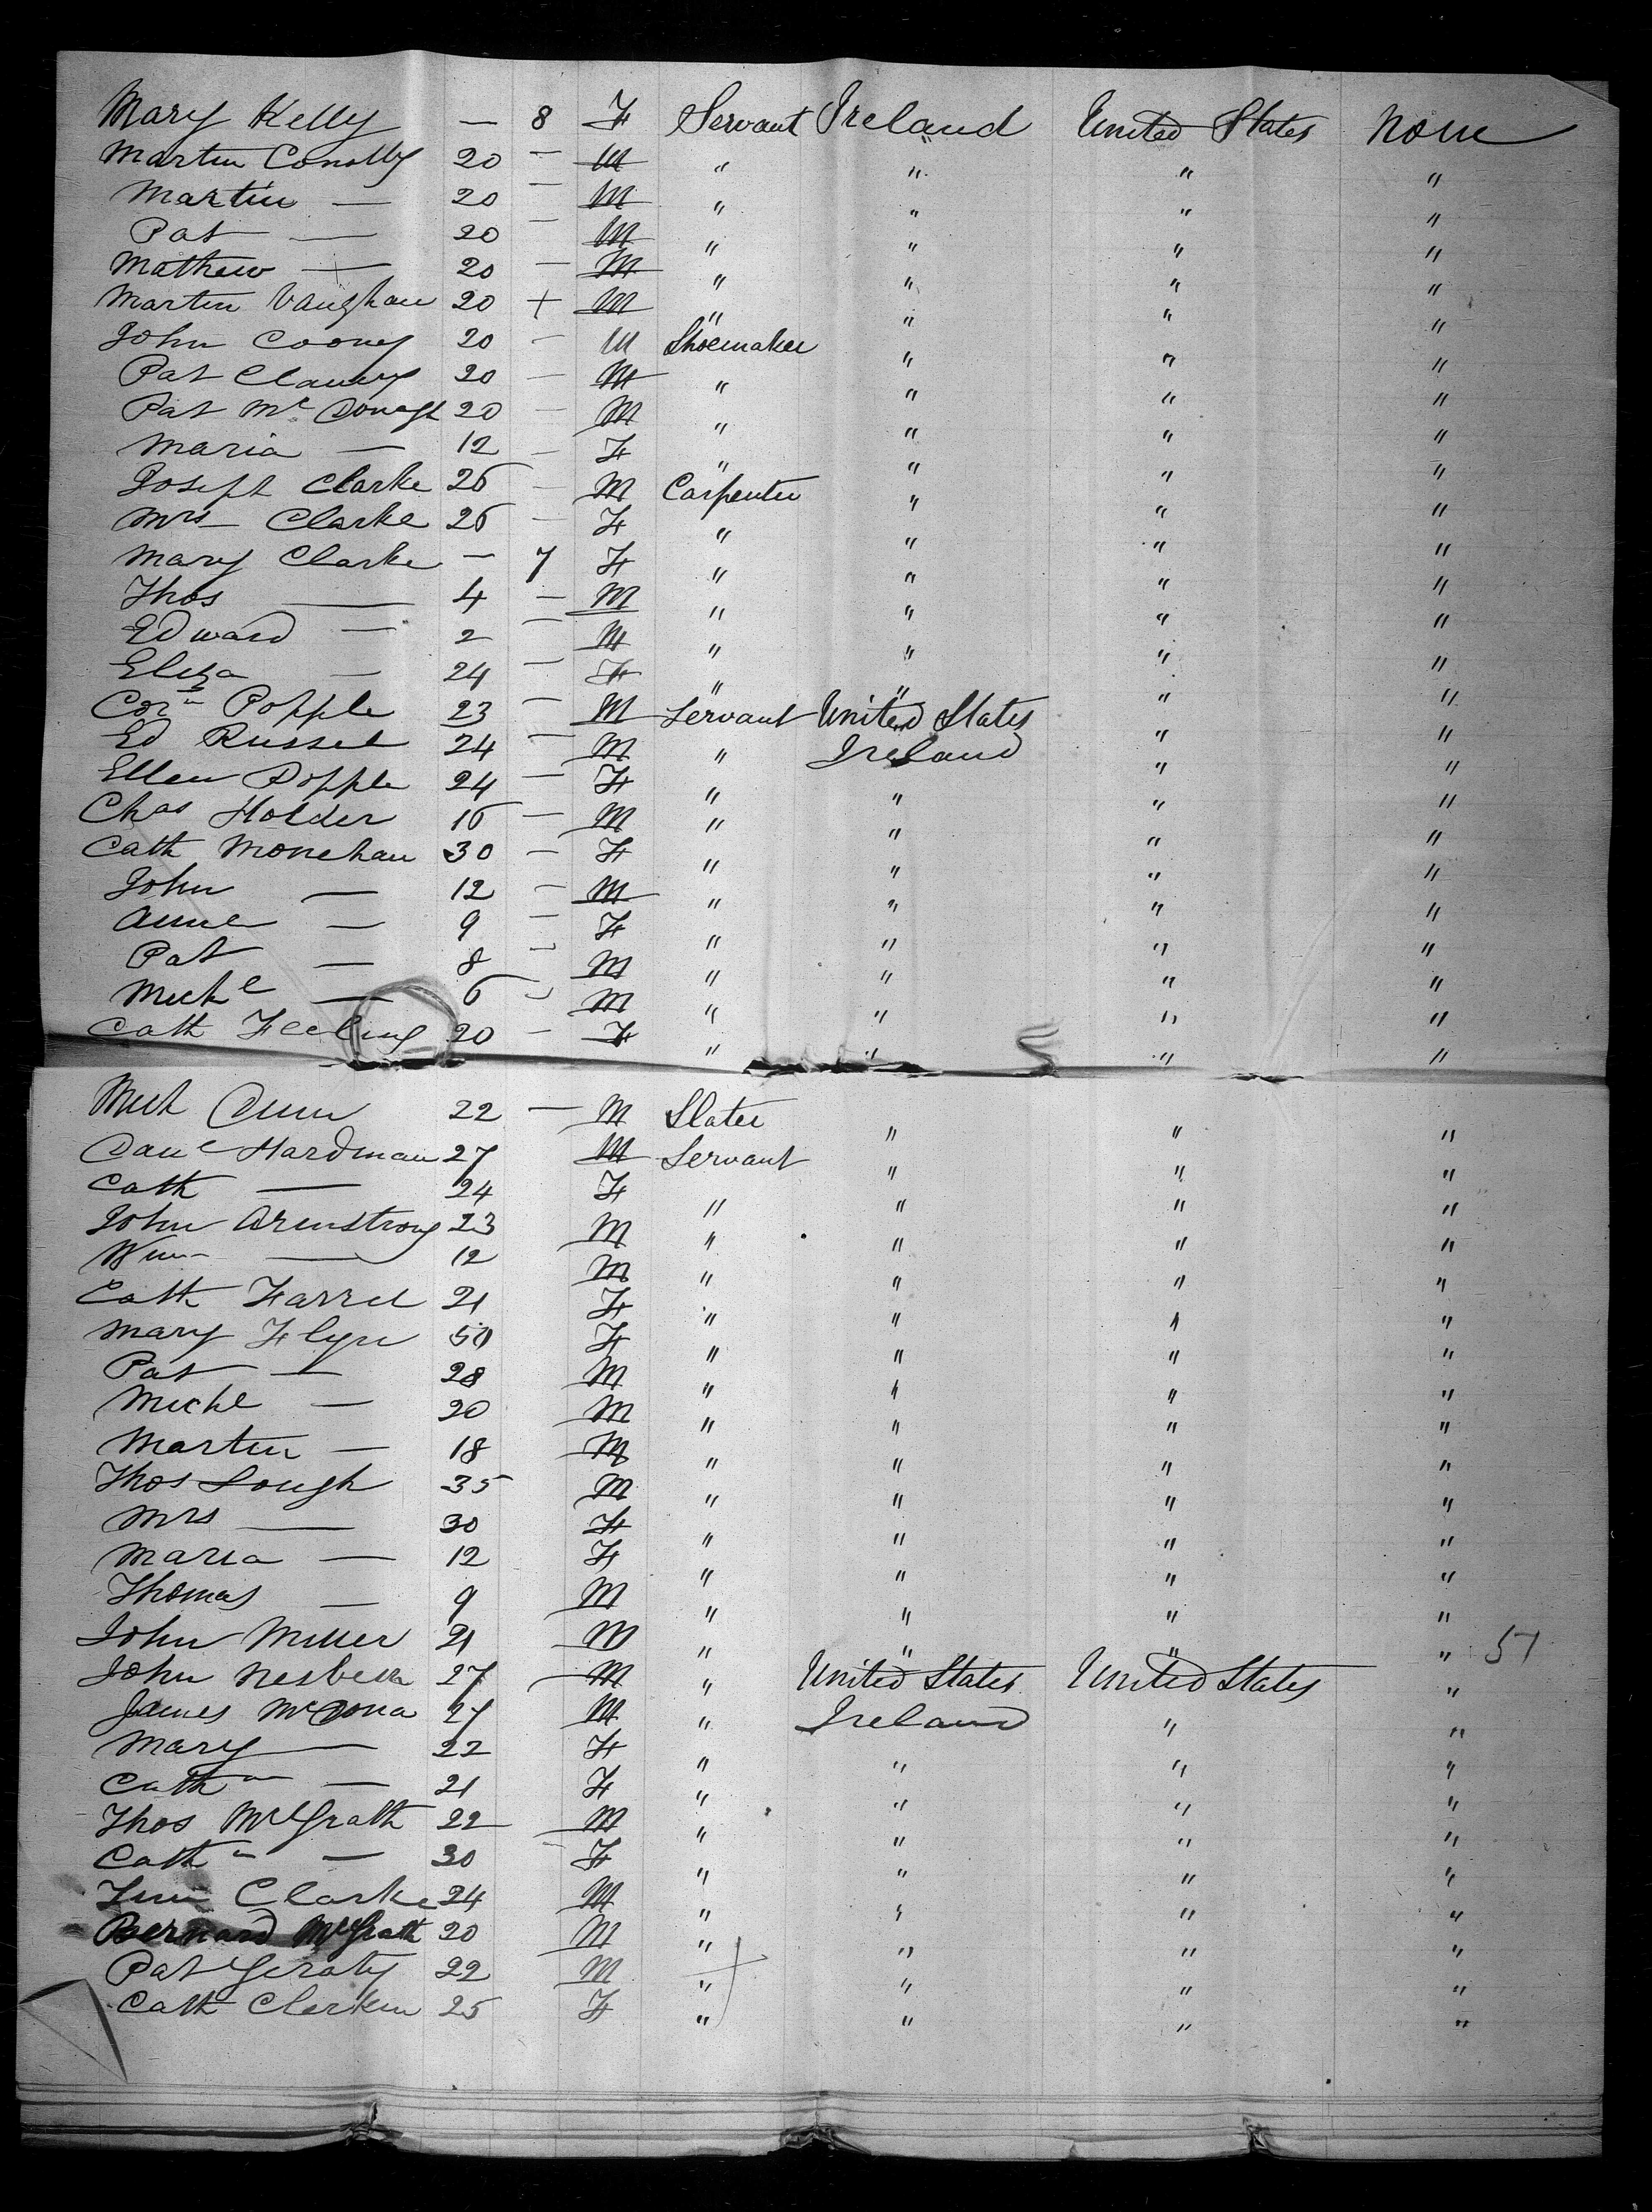 Mary Kelly — 8 F Servant Ireland United States None
Martin Conolly 20 — M " " " "
Martin — 20 — M " " " "
Pat — 20 — M " " " "
Mathew — 20 — M " " " "
Martin Vaughan 20 + M " " " "
John Cooney 20 — M Shoemaker " " "
Pat Clancy 20 — M " " " "
Pat Mc Donagh 20 — M " " " "
Maria — 12 — F " " " "
Joseph Clarke 26 — M Carpenter " " "
Mrs Clarke 26 — F " " " "
Mary Clarke — 7 F " " " "
Thos — 4 — M " " " "
Edward — 2 — M " " " "
Eliza — 24 — F " " " "
Corn Popple 23 — M Servant United States " "
Ed Russel 24 — M " Ireland " "
Ellen Popple 24 — F " " " "
Chas Holder 16 — M " " " "
Cath Monehan 30 — F " " " "
John — 12 — M " " " "
Anne — 9 — F " " " "
Pat — 8 — M " " " "
Michl — 6 — M " " " "
Cath Feeling 20 — F " " " "
Mich Dunn 22 — M Slater " " "
Danl Hardman 27 M Servant " " "
Cath — 24 F " " " "
John Armstrong 23 M " " " "
Wm — 12 M " " " "
Cath Farrel 21 F " " " "
Mary Flyn 50 F " " " "
Pat — 28 M " " " "
Michl — 20 M " " " "
Martin — 18 M " " " "
Thos Lough 35 M " " " "
Mrs — 30 F " " " "
Maria — 12 F " " " "
Thomas — 9 M " " " "
John Miller 21 M " " " " 51
John 27 M " United States United States "
James McDona 27 M " Ireland " "
Mary — 22 F " " " "
Cath — 21 F " " " "
Thos McGrath 22 M " " " "
Cath — 30 F " " " "
Clarke 24 M " " " "
Bernard McGrath 20 M " " " "
Pat Geraty 22 M " " " "
Cath Clerkin 25 F " " " "